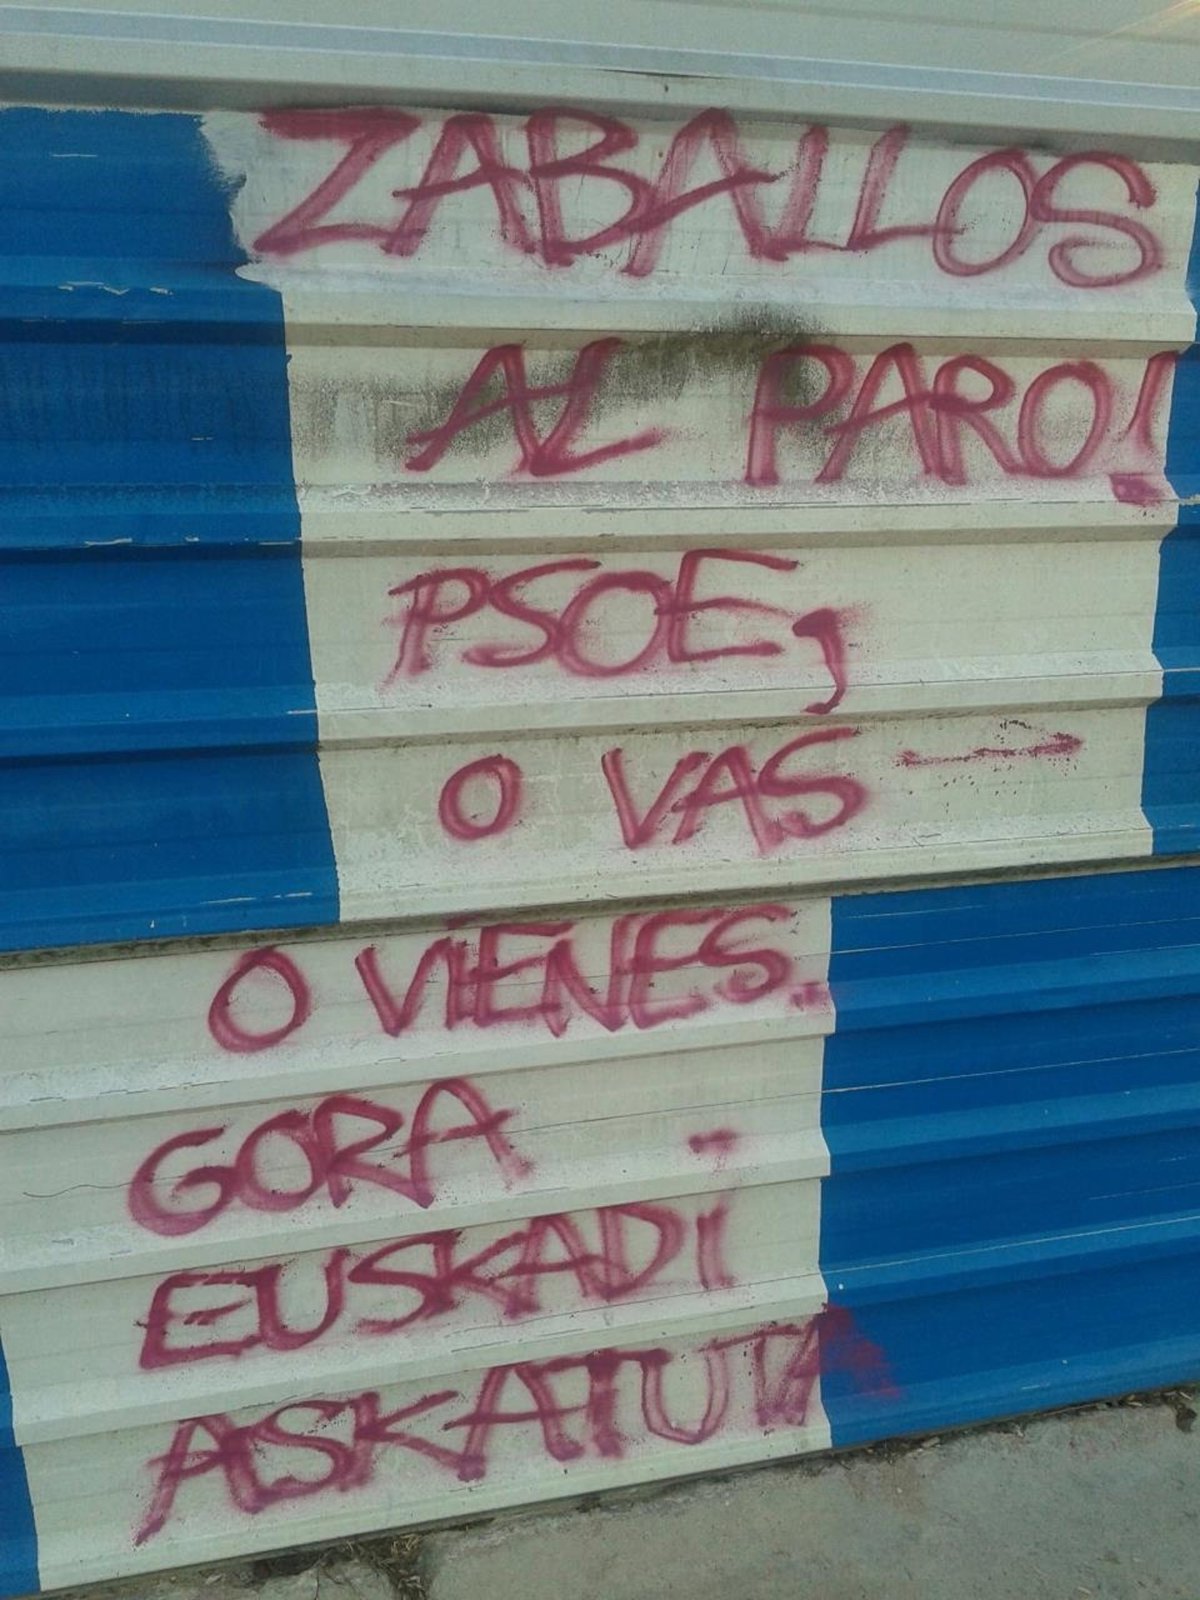 ZABALLOS
AL PARO!
PSOE,
O VAS
O VIENES..
GORA
EUSKADI
ASKATUTA